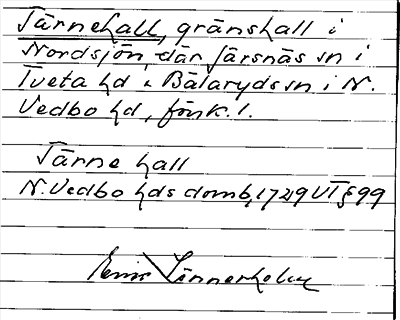 Tärnehall, gränshall i
Nordsjön, där Järsnäs sn i
Tveta hd & Bälaryds sn i N.
Vedbo hd, försk.!.
Tärne hall
N. Vedbo hds domb, 1729 VT § 99
Linnerhelm